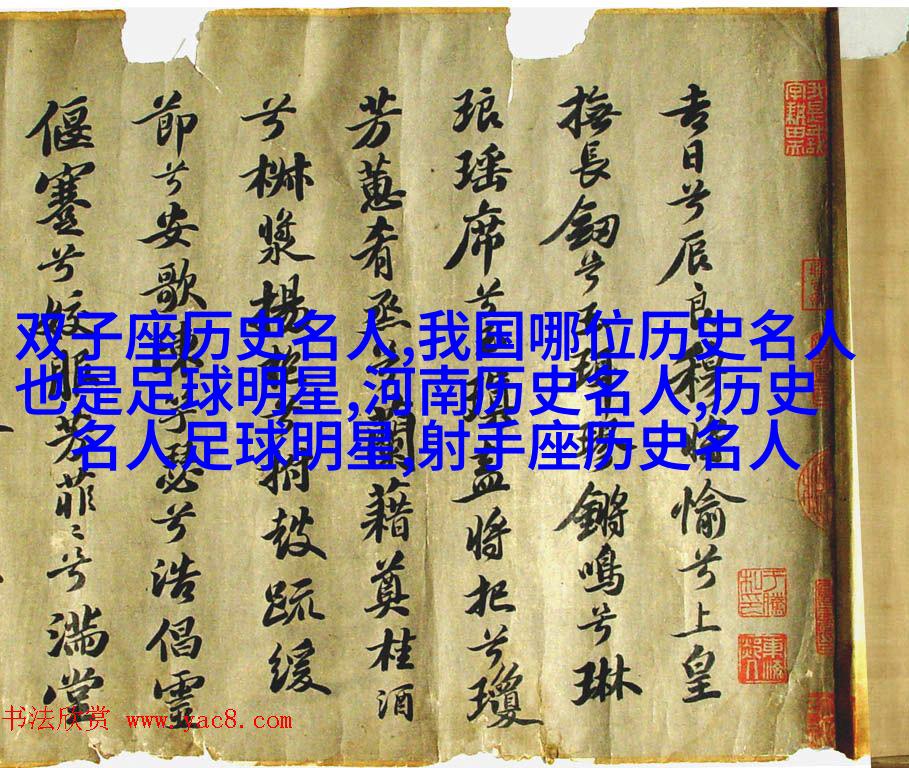 双子座历史名人,我国哪位历史名人
也是足球明星,河南历史名人,历史
名人足球明星,射手座历史名人
吉日兮辰良穆將愉兮上皇
撫長劔兮玉珥璆鏘鳴兮琳
琅瑶席兮玉瑱盍將把兮瓊
芳蕙肴烝兮蘭藉奠桂酒
兮椒漿揚枹兮拊鼓疏緩
節兮安歌陳竽瑟兮浩倡靈
偃蹇兮姣服芳菲〻兮滿堂
书法欣赏 www.yac8.com